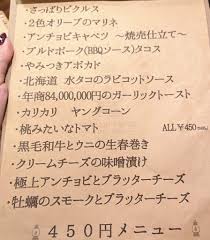 ・さっぱりピクルス
・2色オリーブのマリネ
・アンチョビキャベツ ～焼売仕立て～
・プルドポーク(BBQソース)タコス
・やみつきアボカド
・北海道 水タコのラビゴットソース
・年商84,000,000円のガーリックトースト
・カリカリ ヤングコーン
・桃みたいなトマト ALL¥450
・黒毛和牛とウニの生春巻き
・クリームチーズの味噌漬け
・極上アンチョビとブラッターチーズ
・牡蠣のスモークとブラッターチーズ
450円メニュー